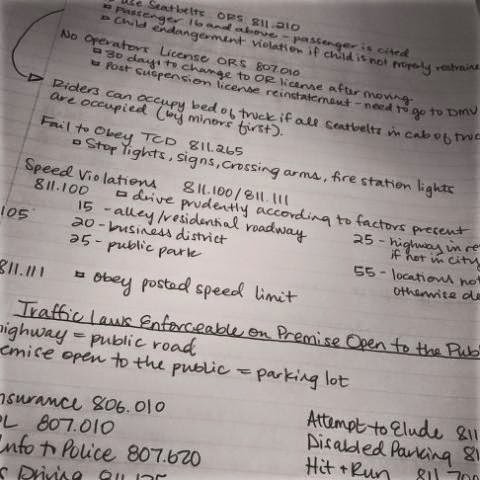 use Seatbelts ORS 811.210
Passenger 16 and above - passenger is cited
Child endangerment violation if child is not properly restraine
No Operators License ORS 807.010
30 days to change to OR license after moving
Post suspension license reinstatement - need to go to DMV
Riders can occupy bed of truck if all seatbelts in cab of truc
are occupied (by minors first).
Fail to Obey TCD 811.265
Stop lights, signs, crossing arms, fire station lights
Speed Violations 811.100/811.111
811.100 drive prudently according to factors present
105 15 - alley/residential roadway 25 - highway in re
20 - business district if not in city
25 - public park 55 - locations not
otherwise de
811.111 Obey posted speed limit
Traffic Laws Enforceable on Premise Open to the Pub
highway = public road
emise open to the public = parking lot
nsurance 806.010 Attempt to Elude 811
OL 807.010 Disabled Parking 81
Info to Police 807.620 Hit + Run 811.700
s Driving 811.135